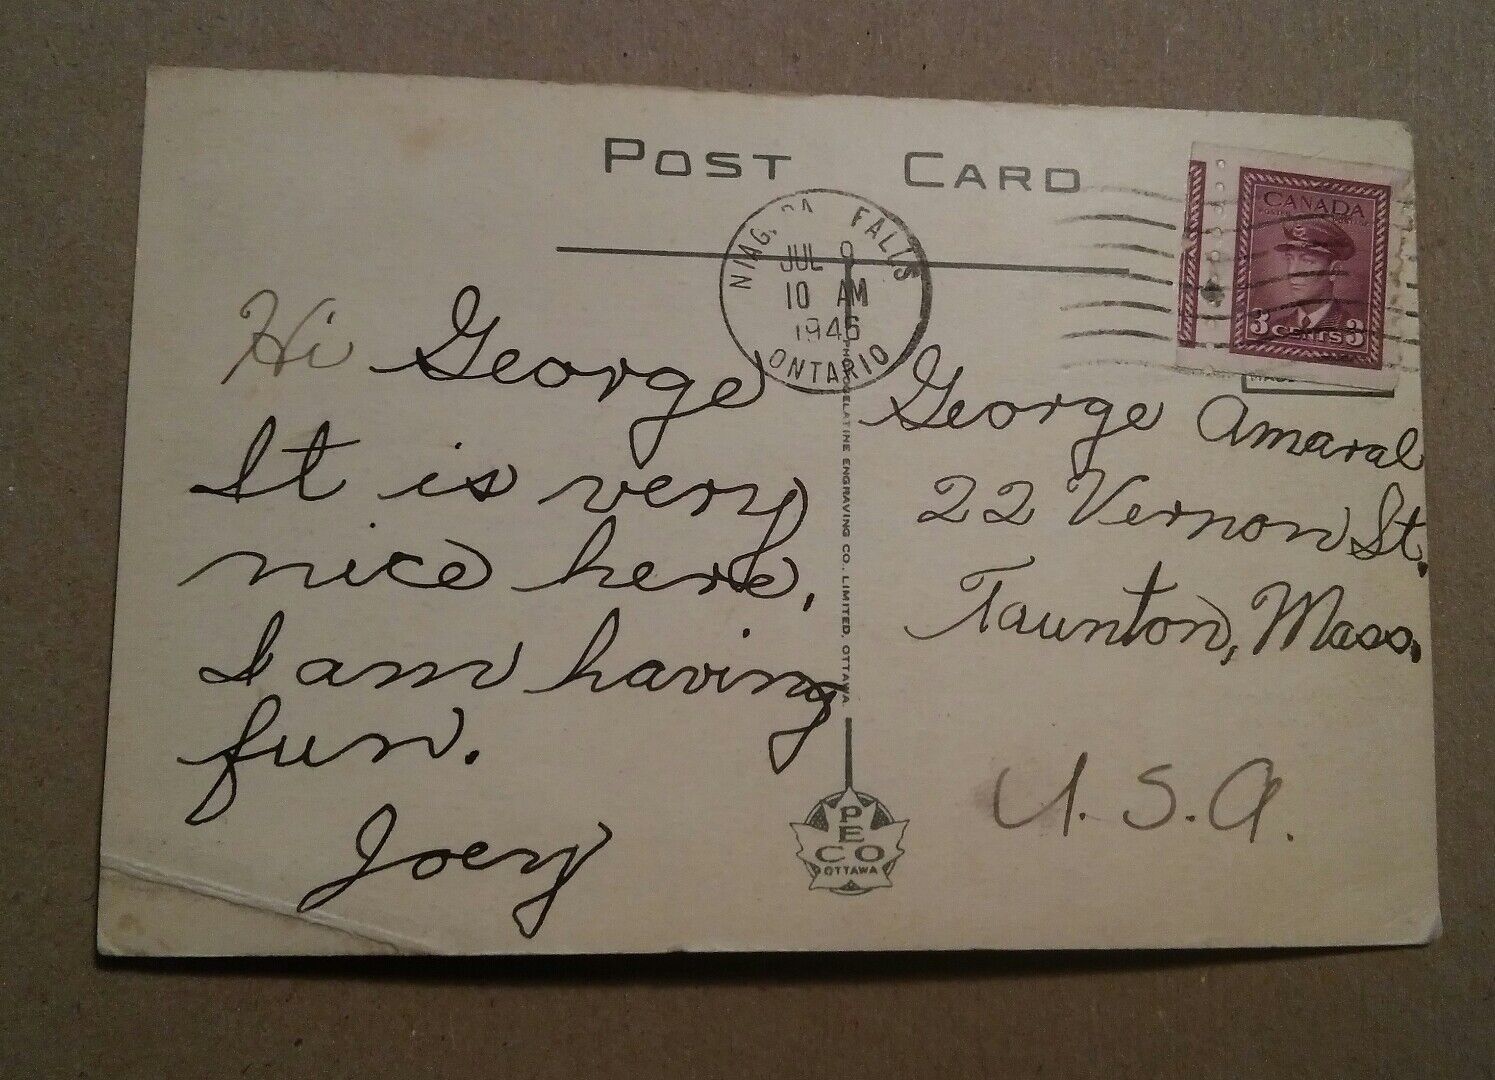 POST CARD
NIAG. RA FALLS
JUL 9
10 AM
1946
ONTARIO
CANADA
3 CENTS 3
Hi George
It is very
nice here,
I am having
fun.
Joey
George Amaral
22 Vernon St.
Taunton, Mass.
U.S.A.
PHOTOGELATINE ENGRAVING CO. LIMITED, OTTAWA.
PECO
OTTAWA